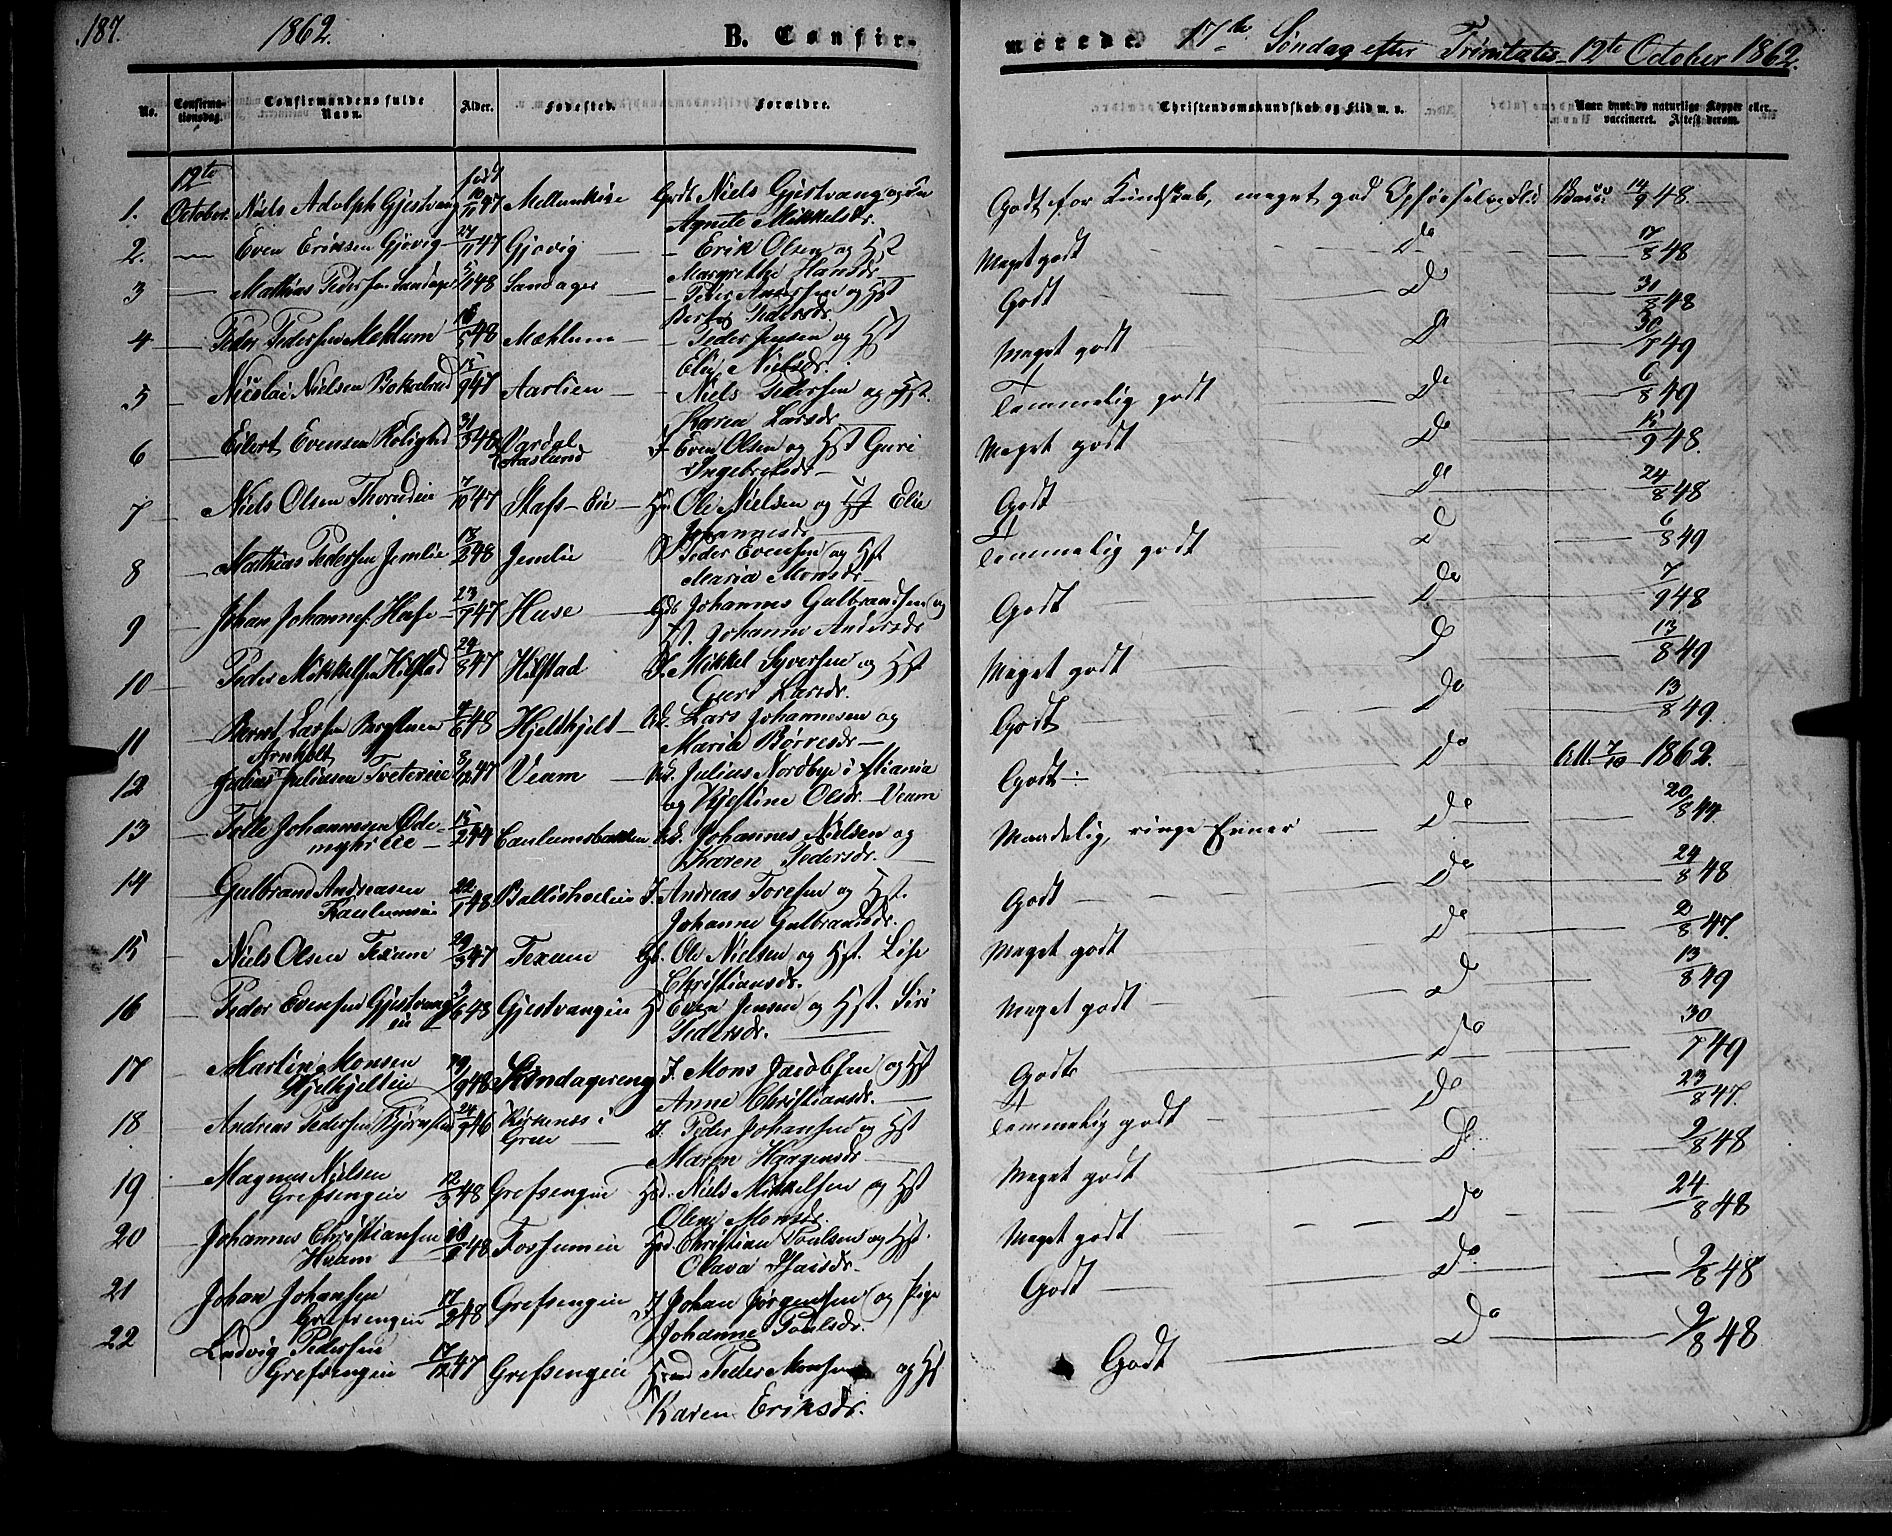 187. 1862. B. Confir- merede. 17de Søndag efter Trinitatis 12te October 1862.
No. Confirma- tionsdag. Confirmandens fulde Navn. Alder. Fødested. Forældre. Christendomskundskab og Flid m. v. Naar havt de naturlige Kopper eller vaccineret. Attest derom.
12te født
1. October. Niels Adolph Gjestvang 47 Grdb Niels Gjestvang og Agnete Mikkelsdr. Godt for Kundskab, meget god Opførsel 14/9 48
2. Even Eriksen Gjøvig 47 Gjøvig Erik Olsen og Hst Margrethe Hansdr. Meget godt Do 17/8 48
3 Mathias Pedersen Sandager 48 Sandager Peder Andersen og Hst Berthe Pedersdr. Godt Do 31/8 48
4 Peder Pedersen Mæhlum 48 Mæhlum Peder Jensen og Hst Elie Nielsdr. Meget godt Do 30/7 49
5 Nicolai Nielsen 15/9 47 Aarlien Niels Pedersen og Hst. Karen Larsdr. Temmelig godt Do 6/8 49
6 Eilert Evensen Rolighed 31/3 48 Vardal Aaslund I. Even Olsen og Hst Guri Ingebretsdr. Meget godt Do 15/9 48.
7 Niels Olsen Thorudeie 7/10 47 Stafs-Eie Ole Nielsen og Hst Elie Johannesdr. Godt Do 24/8 48
8 Mathias Pedersen Jemlie 48 Jemlie Peder Evensen og Hst Maria Monsdr. Temmelig godt Do 6/8 49
9 Johan Johannes. Huse 23/7 47 Huse Gdb Johannes Gulbrandsen og Hst. Johanne Andersdr Godt Do 7/9 48
10 Peder Mikkelsen Hilstad 29/8 47 Hilstad I. Mikkel Syversen og Hst Guri Larsdr. Meget godt Do 13/8 49
11 Bernt Larsen 48 Hjelskjelt Lars Johannesen og Maria Børresdr Godt Do 13/8 49.
12 Arnholdt Julius Juliussen Tvetereie 8/12 47 Veum Julius Nordbye i og Kjestine Olsdr. Veum Godt Do Att. 7/10 1862.
13 Tolle Johannesen Øde- myhreie 15/2 44 Johannes Nielsen og Karen Pedersdr. Maadelig, ringe Evner Do 20/8 44
14 Gulbrand Andreasen 22/1 48 I. Andreas Toresen og Hst. Johanne Gulbrandsdr. Godt Do 24/8 48
15 Niels Olsen Texum 29/3 47 Texum Gb. Ole Nielsen og Hst. Lise Christiansdr. Meget godt Do 2/8 47.
16 Peder Evensen Gjestvang eie 48 Gjestvangeie Even Jensen og Hst. Siri Pedersdr. Meget godt Do 13/8 49
17 Martin Monsen 48 Sandagereng I. Mons Jacobsen og Hst Anne Christiansdr. Godt Do 30/7 49
18 Andreas Pedersen 46 Kirkenes i Grue I. Peder Johansen og Hst Maren Haagensdr Temmelig godt Do 23/8 47.
19 Magnus Nielsen Grefsengeie 12/3 48 Grefsengeie Niels Mikkelsen og Hst Olene Monsdr. Meget godt Do 9/8 48
20 Johannes Christiansen Hvam 48 Fossumeie Christian Poulsen og Hst. Olava Meget godt Do 24/8 48
21 Johan Johansen Grefsengeie 48 Grefsengeie I Johan Jørgensen og Pige Johanne Poulsdr. Godt Do 9/8 48
22 Ludvig Pedersen Grefsengeie 17/12 47 Grefsengeie Peder Monsen og Hst Karen Eriksdr. Godt Do 9/8 48